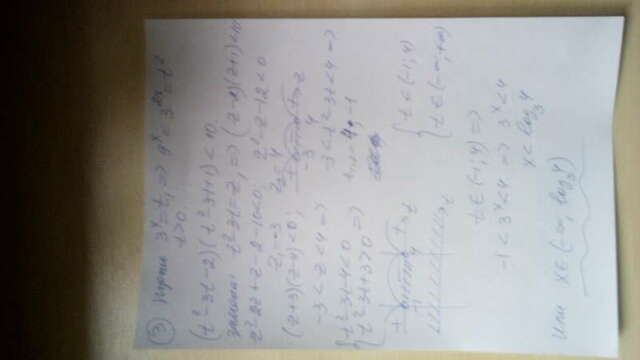 ③ Пусть 3^x = t, => 9^x = 3^{2x} = t²
t>0
(t² - 3t - 2)(t² - 3t + 1) < 10
замена: t² - 3t = z, => (z-2)(z+1) < 10
z² - 2z + z - 2 - 10 < 0; z² - z - 12 < 0
z₁ = -3 z₂ = 4
(z+3)(z-4) < 0; + - + z
-3 4
-3 < z < 4 => -3 < t² - 3t < 4 =>
{ t² - 3t - 4 < 0
t² - 3t + 3 > 0 => 4; -1
+ + t
t
{ t ∈ (-1; 4)
t ∈ (-∞; +∞)
t ∈ (-1; 4) =>
-1 < 3^x < 4 => 3^x < 4
x < log₃4
Или x ∈ (-∞, log₃4)